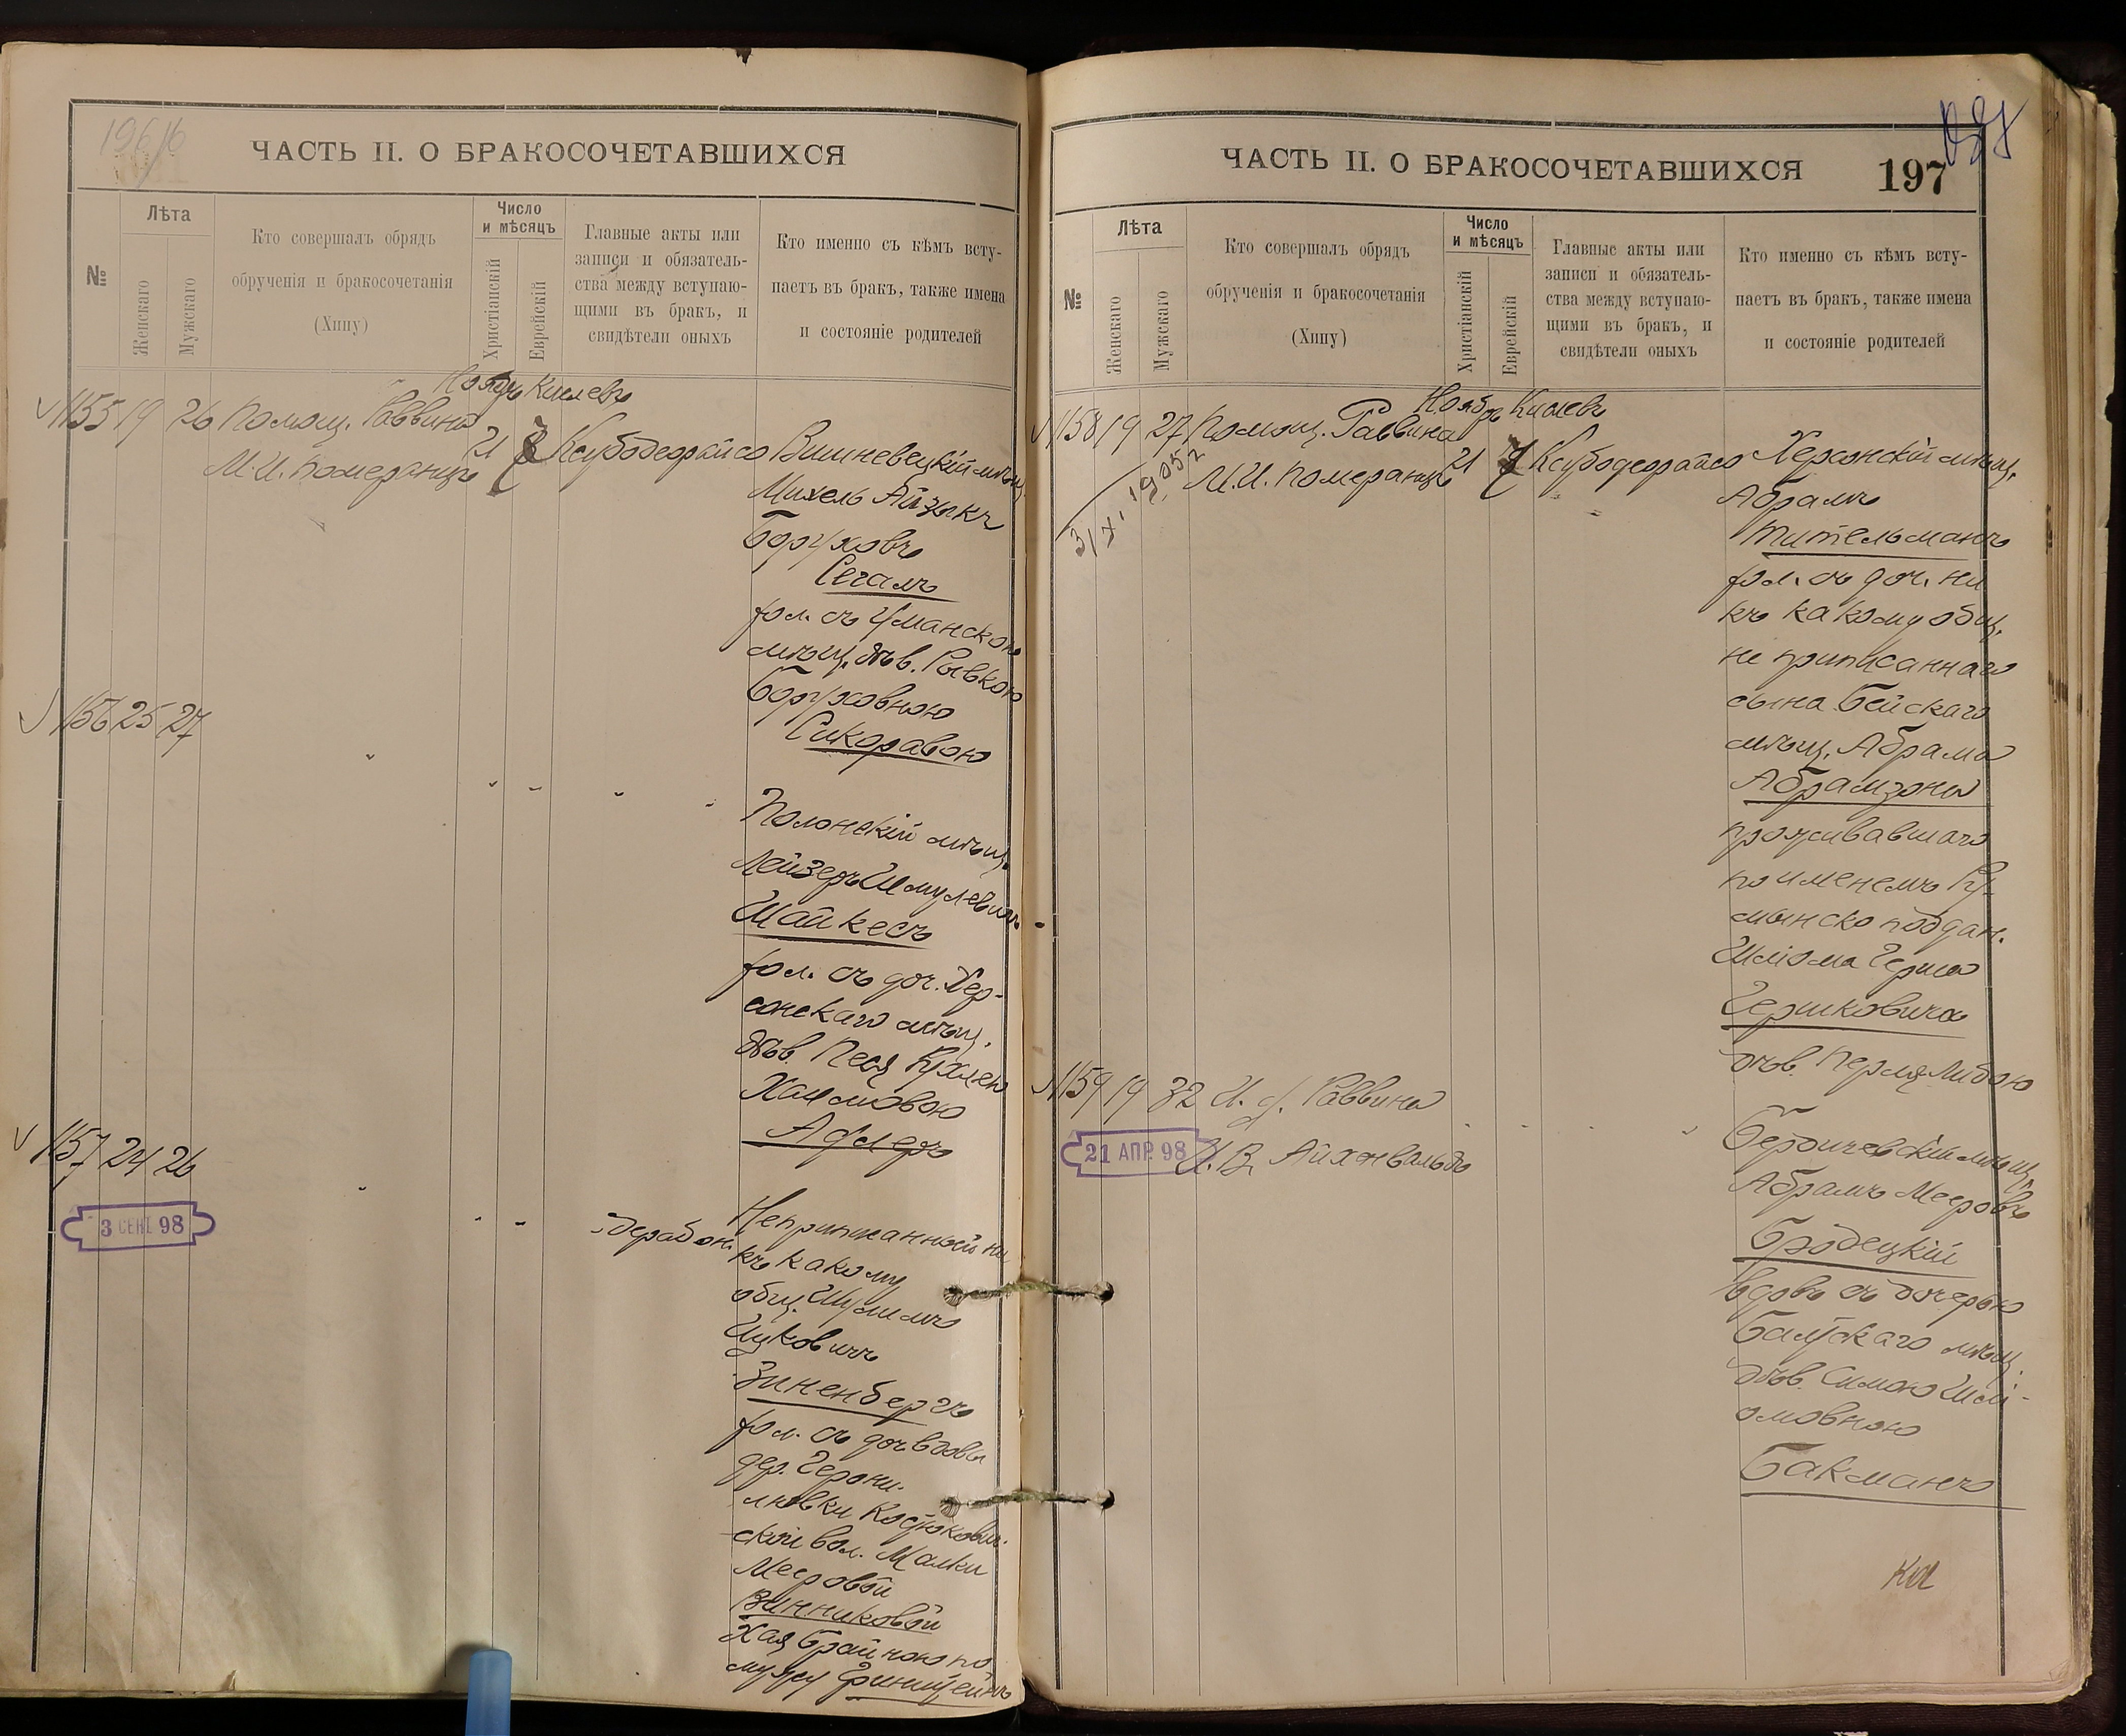 196
ЧАСТЬ II. О БРАКОСОЧЕТАВШИХСЯ
№
Лѣта
Женскаго
Мужскаго
Кто совершалъ обрядъ
обрученія и бракосочетанія
(Хипу)
Число
и мѣсяцъ
Христіанскій
Еврейскій
Главные акты или
записи и обязатель-
ства между вступаю-
щими въ бракъ, и
свидѣтели оныхъ
Кто именно съ кѣмъ всту-
паетъ въ бракъ, также имена
и состояніе родителей
Ноябрь Кислевъ
1155 19 26 Помощ. Раввина
М.И. Померанцъ
21
Ксубодеорайсо
Вишневецкій мѣщ.
Михель Айзыкъ
Боруховъ
Сегалъ
хол. съ Уманскою
мѣщ. дѣв. Рывкою
Боруховною
Сикоравою
1156 25 27
Полонскій мѣщ.
Лейзеръ Шмулевичъ
Шайкесъ
хол. съ доч. Хер-
сонскаго мѣщ.
дѣв. Песя Рухлею
Хаимовою
Адлеръ
1157 24 26
3 СЕНТ 98
дерабон.
Неприписанный ни
къ какому
общ. Шулимъ
Ицковичъ
Зиненбергъ
хол. съ доч. вдовы
дер. Герони-
мовки
ской вол. Малки
Мееровой
Винниковой
Хая Брайною по
мужу Гринштейнъ
ЧАСТЬ II. О БРАКОСОЧЕТАВШИХСЯ
197
№
Лѣта
Женскаго
Мужскаго
Кто совершалъ обрядъ
обрученія и бракосочетанія
(Хипу)
Число
и мѣсяцъ
Христіанскій
Еврейскій
Главные акты или
записи и обязатель-
ства между вступаю-
щими въ бракъ, и
свидѣтели оныхъ
Кто именно съ кѣмъ всту-
паетъ въ бракъ, также имена
и состояніе родителей
Ноябрь Кислевъ
1158 19 27 Помощ. Раввина
М.И. Померанцъ
21
Ксубодеорайсо
3/X. 1905 г.
Херсонскій мѣщ.
Абрамъ
Тительманъ
хол. съ доч. ни
къ какому общ.
не приписаннаго
сына Бейскаго
мѣщ. Абрама
Абрамзона
проживавшаго
по именемъ Ру-
мынско поддан.
Шлiома Герша
Гершковича
дѣв. Перля Либою
1159 19 32 И. д. Раввина
И. В. Айхенвальдъ
21 АПР. 98
Бердичевскій мѣщ.
Абрамъ Мееровъ
Бродецкій
вдовъ съ дочерью
Балтскаго мѣщ.
дѣв. Симою Шлi-
омовною
Бакманъ